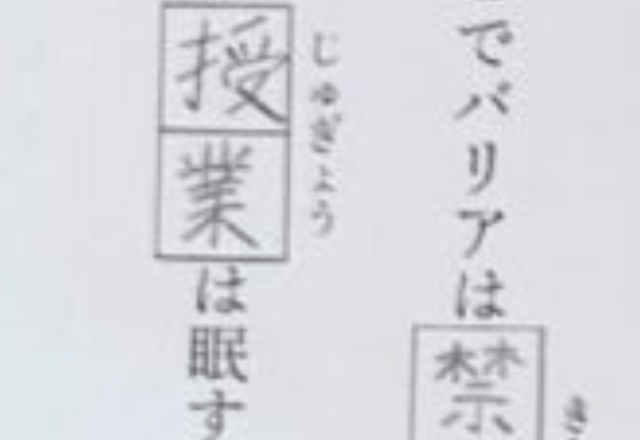 でバリアは禁
き
じゅぎょう
授業は眠す